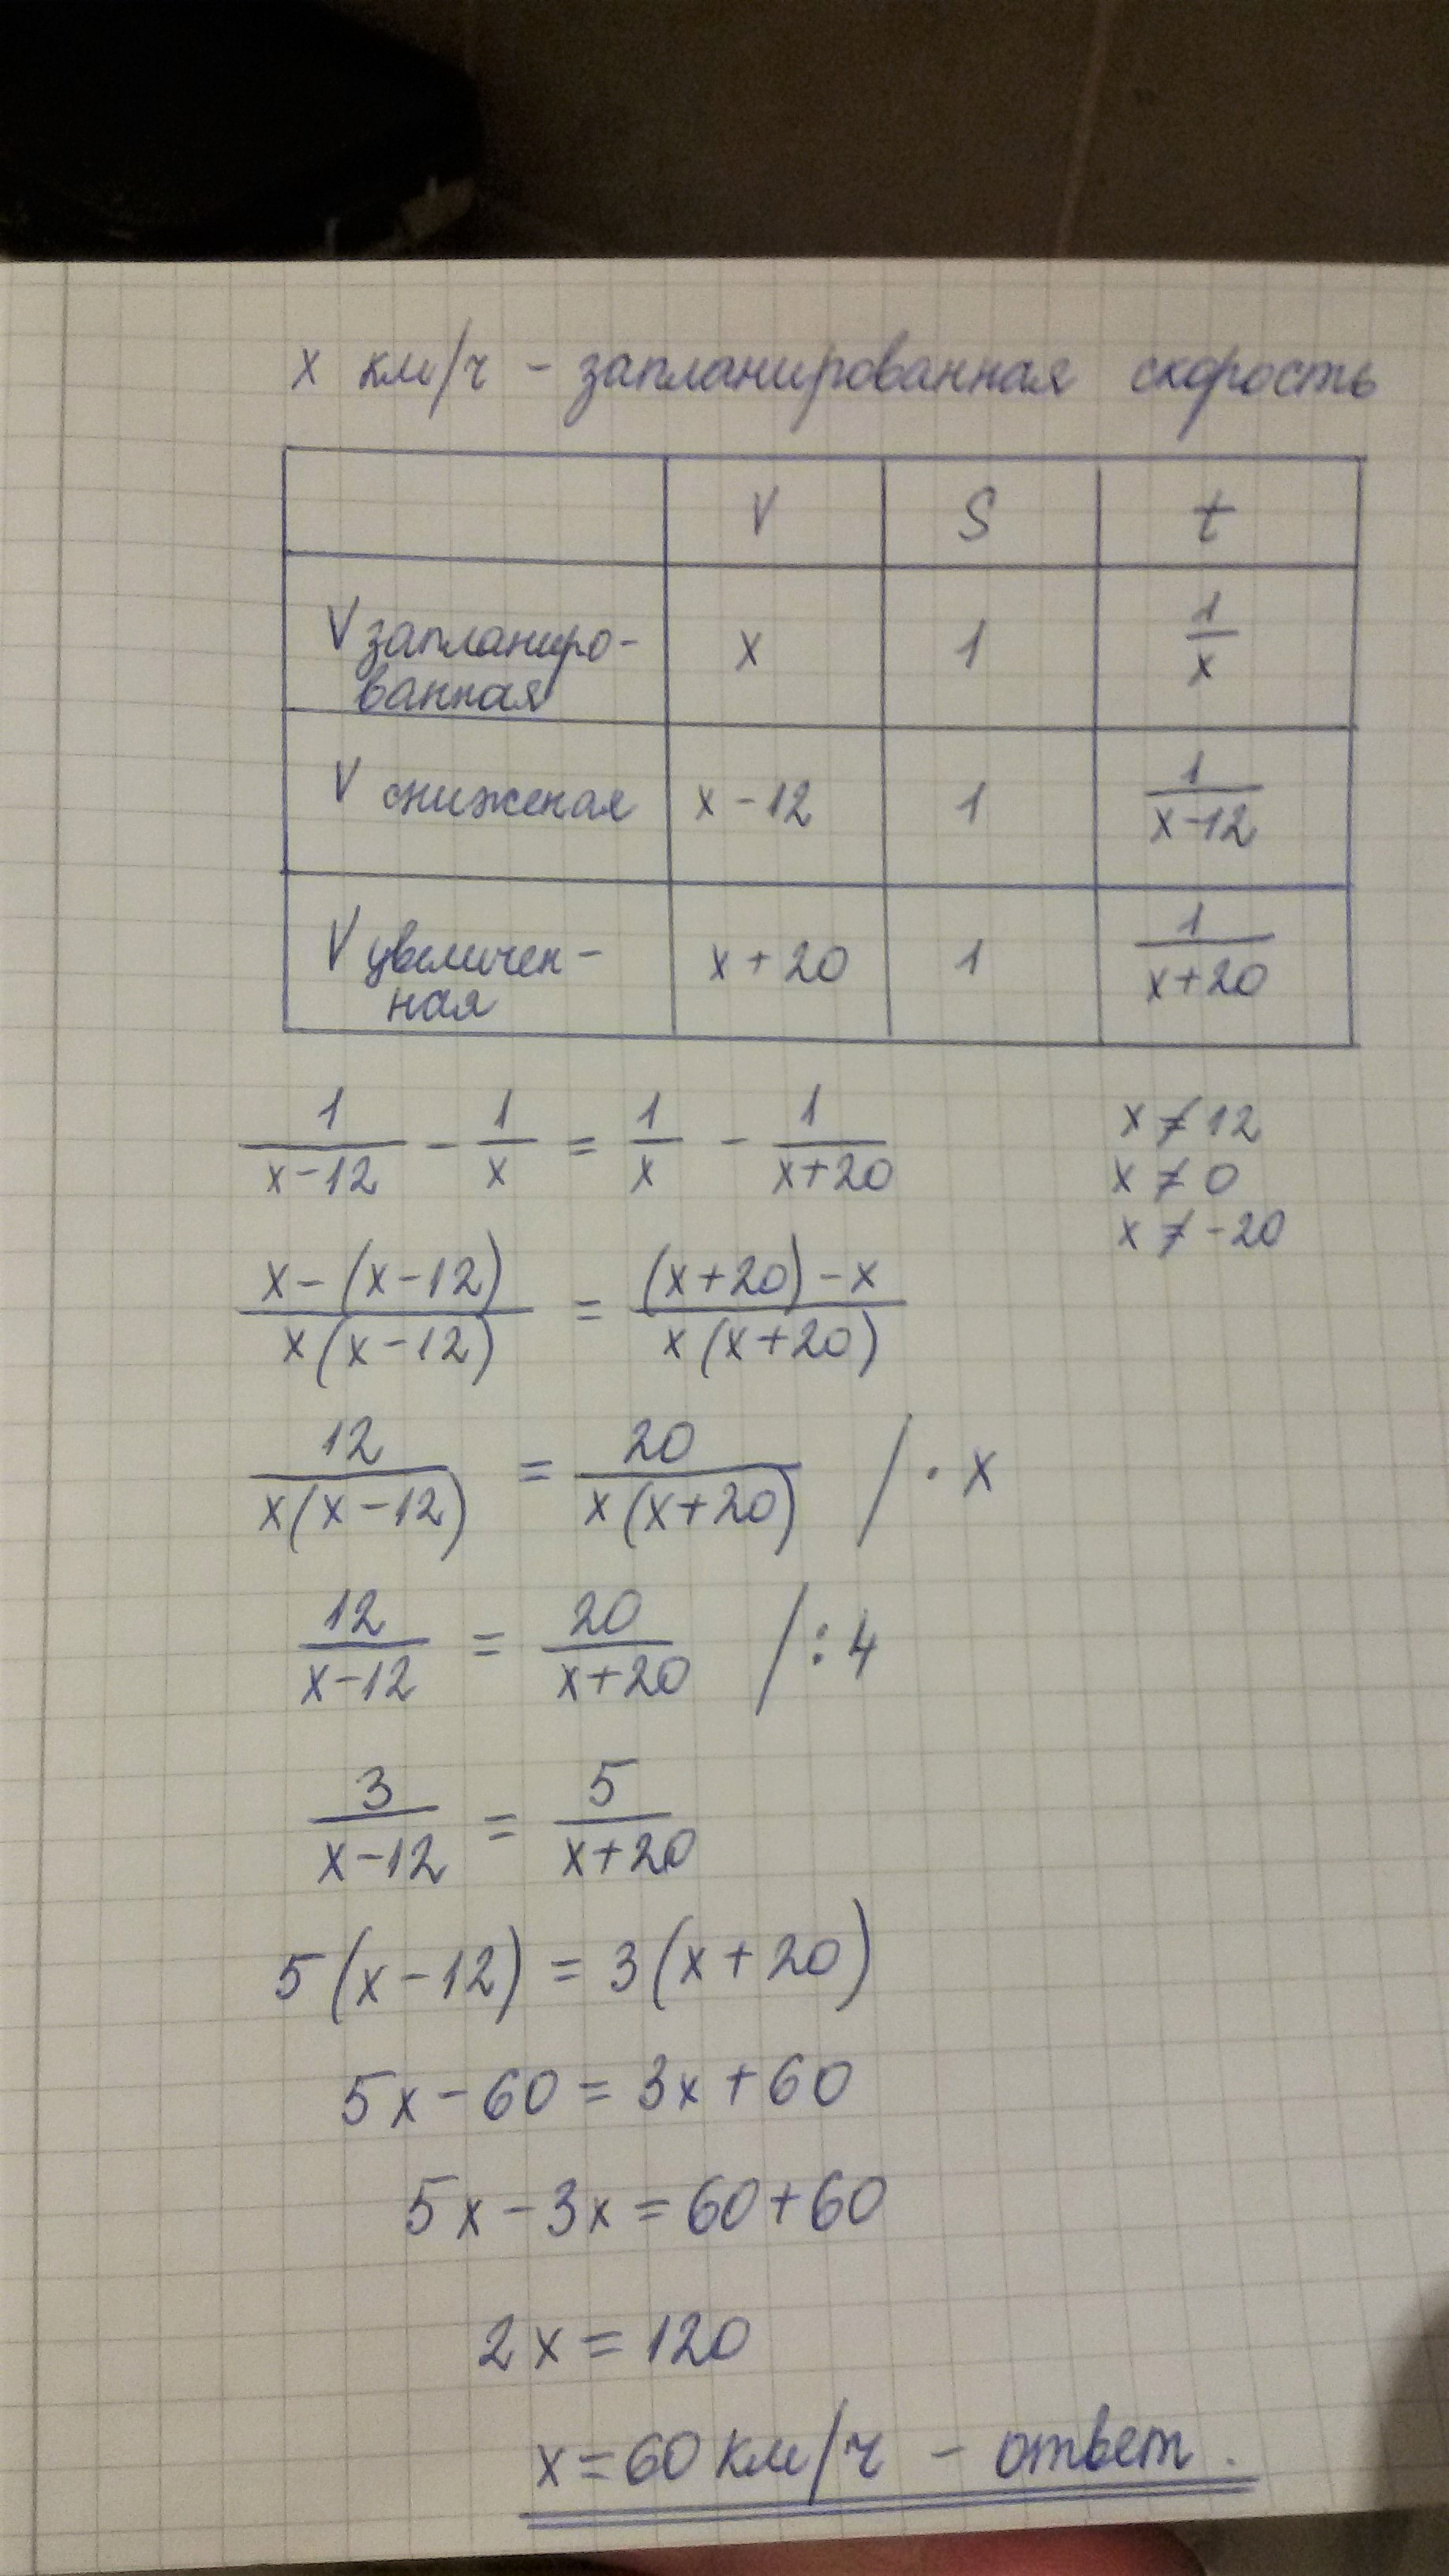 x км/ч - запланированная скорость
V S t
V запланиро-
ванная x 1 1/x
V сниженая x-12 1 1/(x-12)
V увеличен-
ная x+20 1 1/(x+20)
1/(x-12) - 1/x = 1/x - 1/(x+20) x≠12
x≠0
x≠-20
(x-(x-12))/(x(x-12)) = ((x+20)-x)/(x(x+20))
12/(x(x-12)) = 20/(x(x+20)) / · x
12/(x-12) = 20/(x+20) / : 4
3/(x-12) = 5/(x+20)
5(x-12) = 3(x+20)
5x-60=3x+60
5x-3x=60+60
2x=120
x=60 км/ч - ответ.